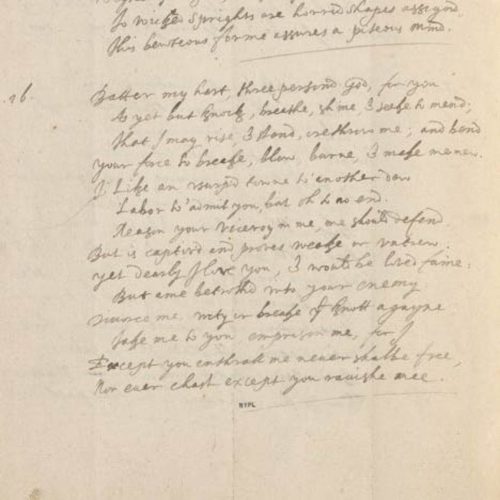 To wicked sprights are horrid shapes assignd,
This beuteous forme assures a piteous mind.
16.
Batter my hart, three persond God, for you
As yet but knock, breathe, shine, & seeke to mend;
That I may rise, & stand, orethrow me; and bend
your force to breake, blow, burne, & make me new.
I Like an vsurpd towne to another dew
Labor to'admit you, but oh to no end.
Reason your viceroy in me, me should defend
But is captivd and proves weake or vntrew.
yet dearly I love you, & would be loved faine:
But ame betrothd vnto your enemy
Divorce me, vnty or breake yt knott agayne
Take me to you emprison me, for I
Except you enthrall me never shalbe free,
Nor ever chast except you ravishe mee.
NYPL